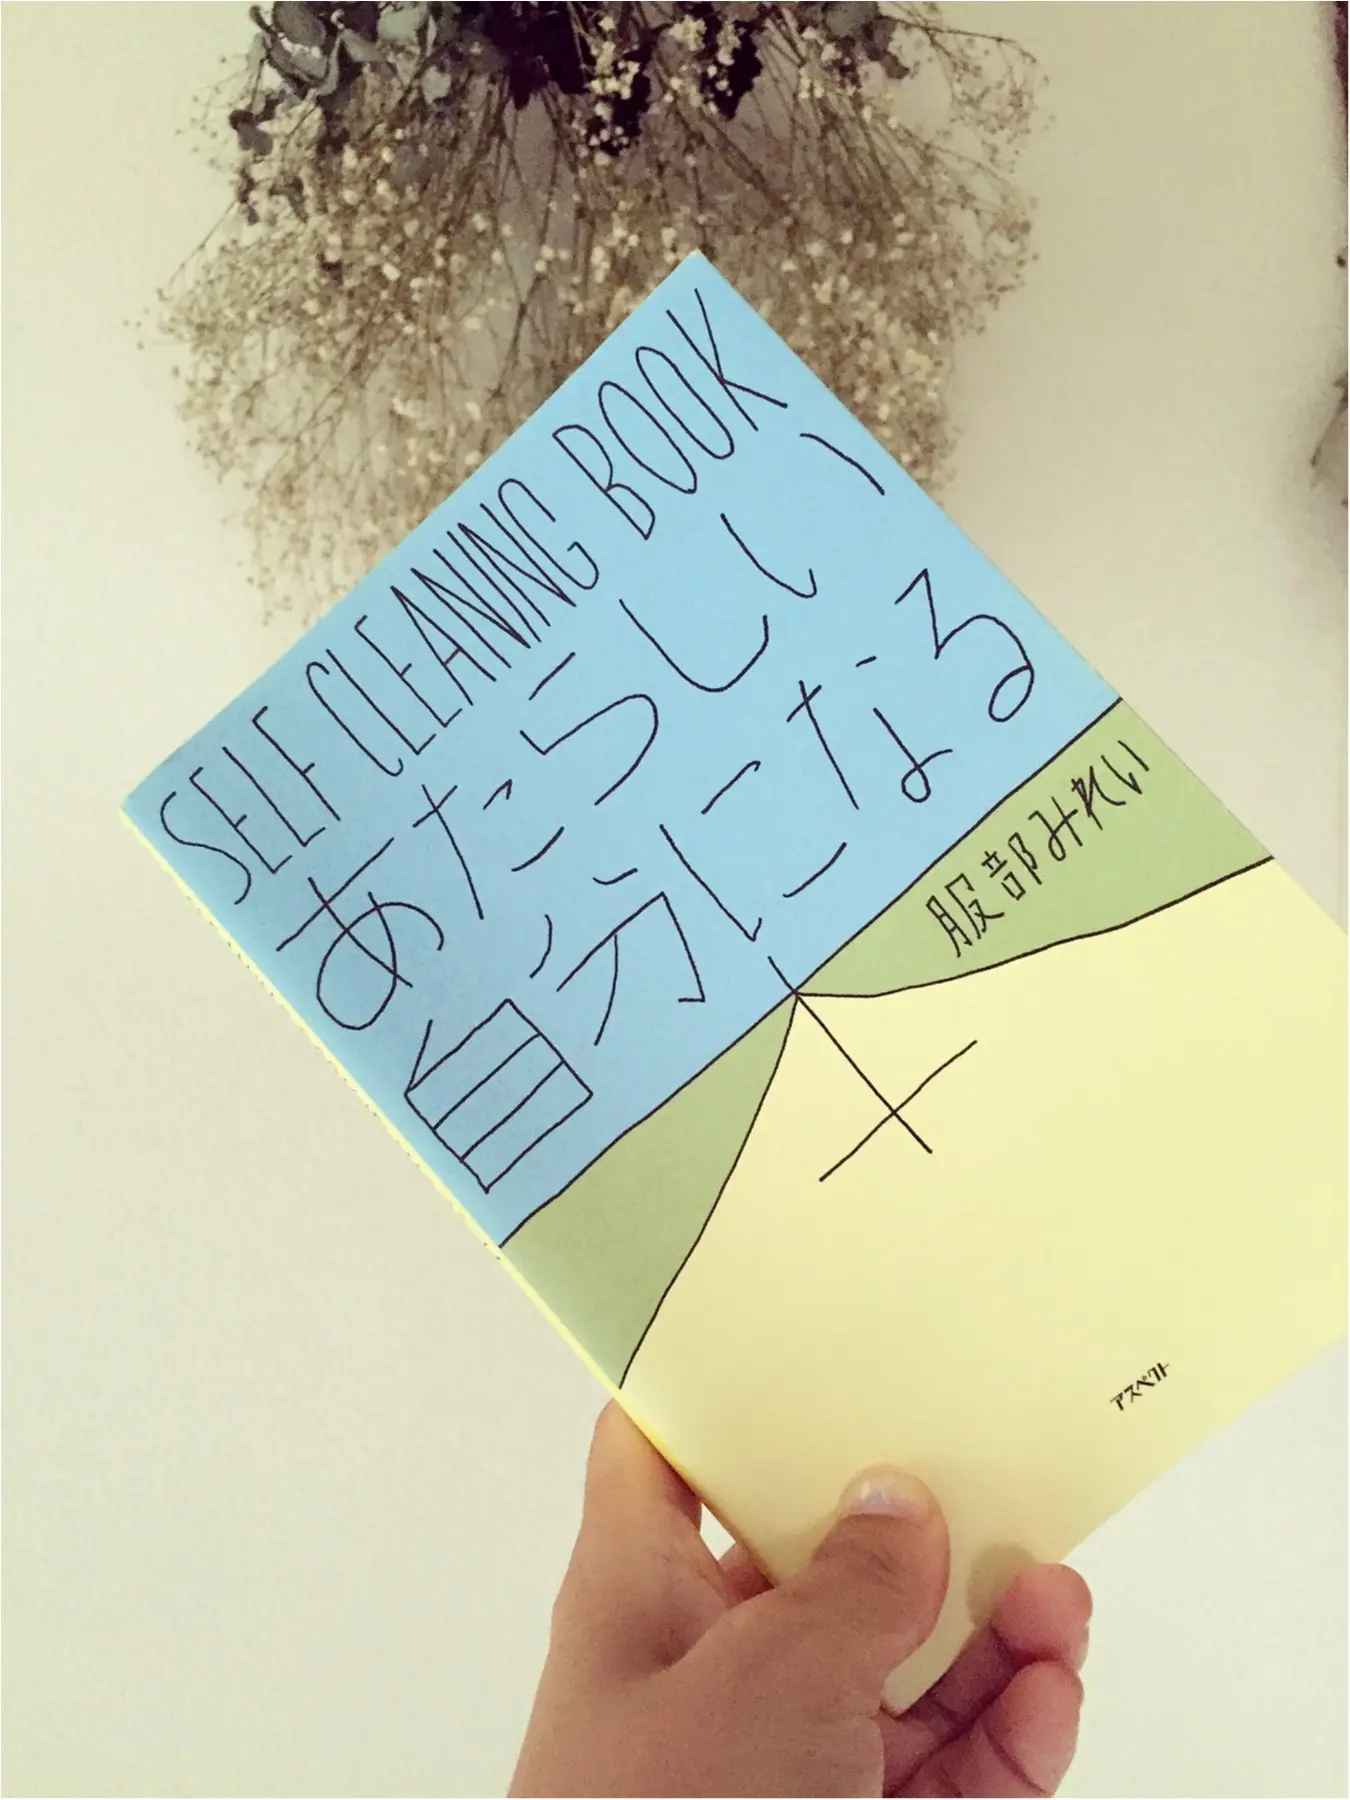 SELF CLEANING BOOK
あたらしい
自分になる
服部みれい
アスペクト